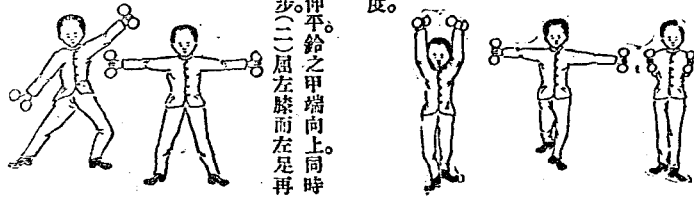 度。
平。鈴之甲端向上。同時
步。(二)屈左膝而左足再